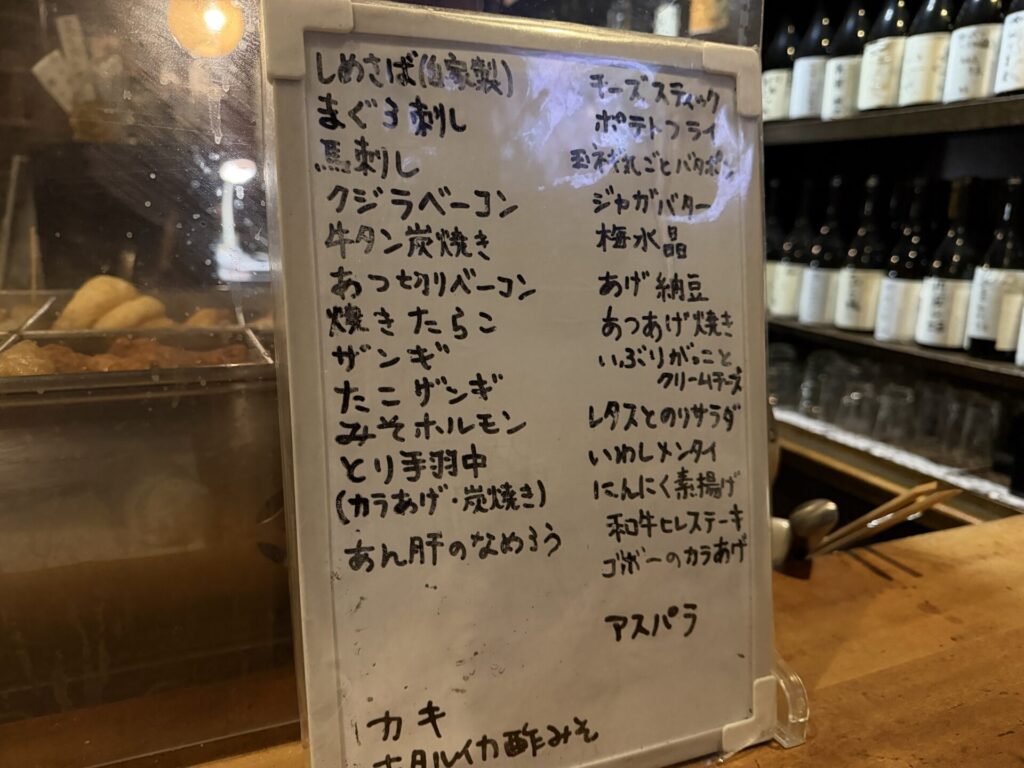 しめさば(自家製)
まぐろ刺し
馬刺し
クジラベーコン
牛タン炭焼き
あつ切りベーコン
焼きたらこ
ザンギ
たこザンギ
みそホルモン
とり手羽中
(カラあげ・炭焼き)
あん肝のなめろう
カキ
ホタルイカ酢みそ
チーズスティック
ポテトフライ
玉ネギ丸ごとバタポン
ジャガバター
梅水晶
あげ納豆
あつあげ焼き
いぶりがっこと
クリームチーズ
レタスとのりサラダ
いわしメンタイ
にんにく素揚げ
和牛ヒレステーキ
ゴボーのカラあげ
アスパラ